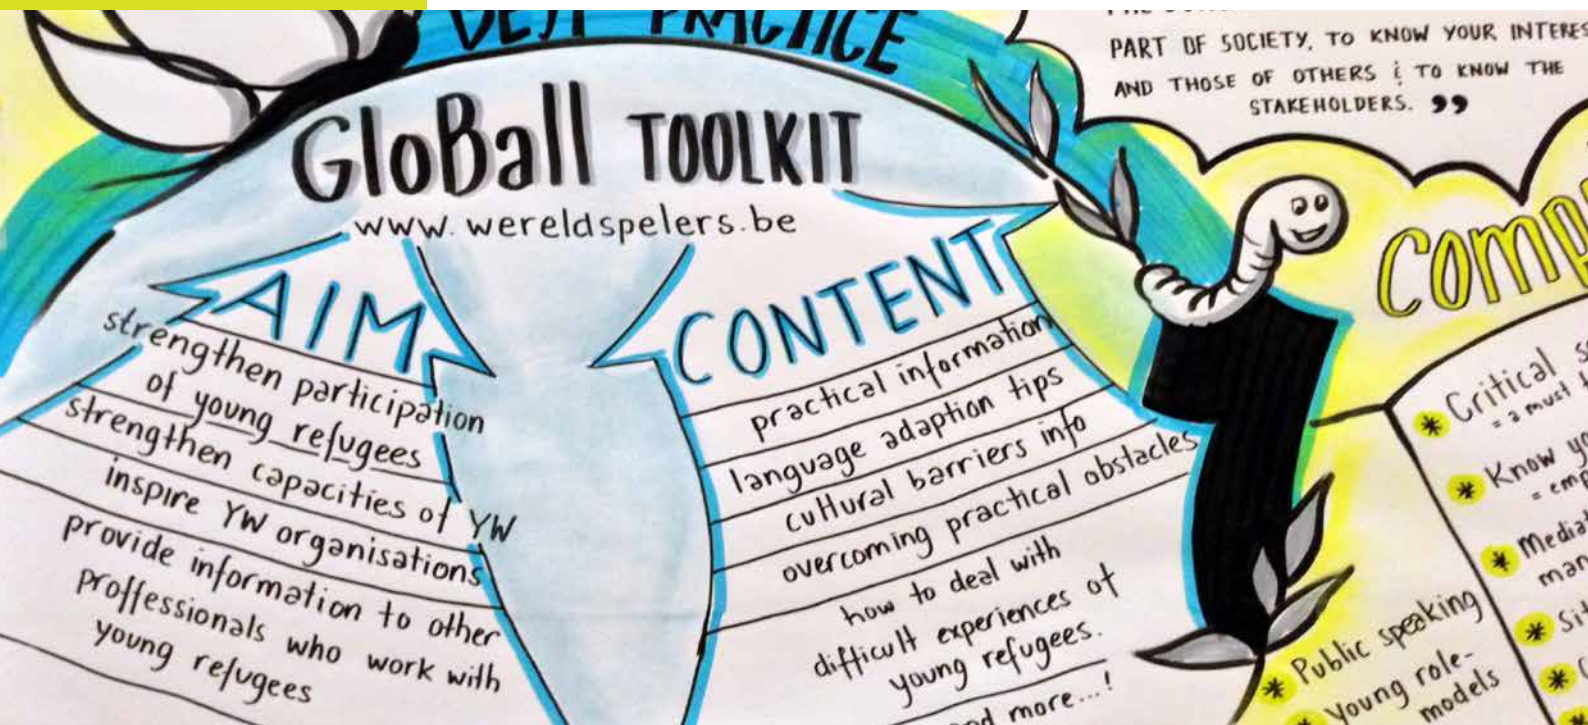 BEST PRACTICE
GloBall TOOLKIT
www.wereldspelers.be
AIM
strengthen participation
of young refugees
strengthen capacities of YW
inspire YW organisations
provide information to other
proffessionals who work with
young refugees
CONTENT
practical information
language adaption tips
cultural barriers info
overcoming practical obstacles
how to deal with
difficult experiences of
young refugees.
more...!
PART OF SOCIETY, TO KNOW YOUR
AND THOSE OF OTHERS & TO KNOW THE
STAKEHOLDERS. ”
* Critical
= a must
* Know
=
*
*
*
* Public speaking
* Young role-
models